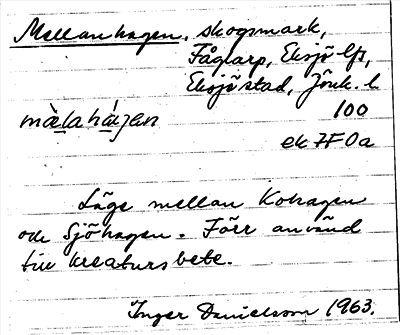 Mellanhagen, skogsmark,
Fåglarp, Eksjö lfs,
Eksjö stad, Jönk. l.
100
ek 7F0a
Läge mellan Kohagen
och Sjöhagen. Förr använd
till kreatursbete.
Inger Danielsson 1963.